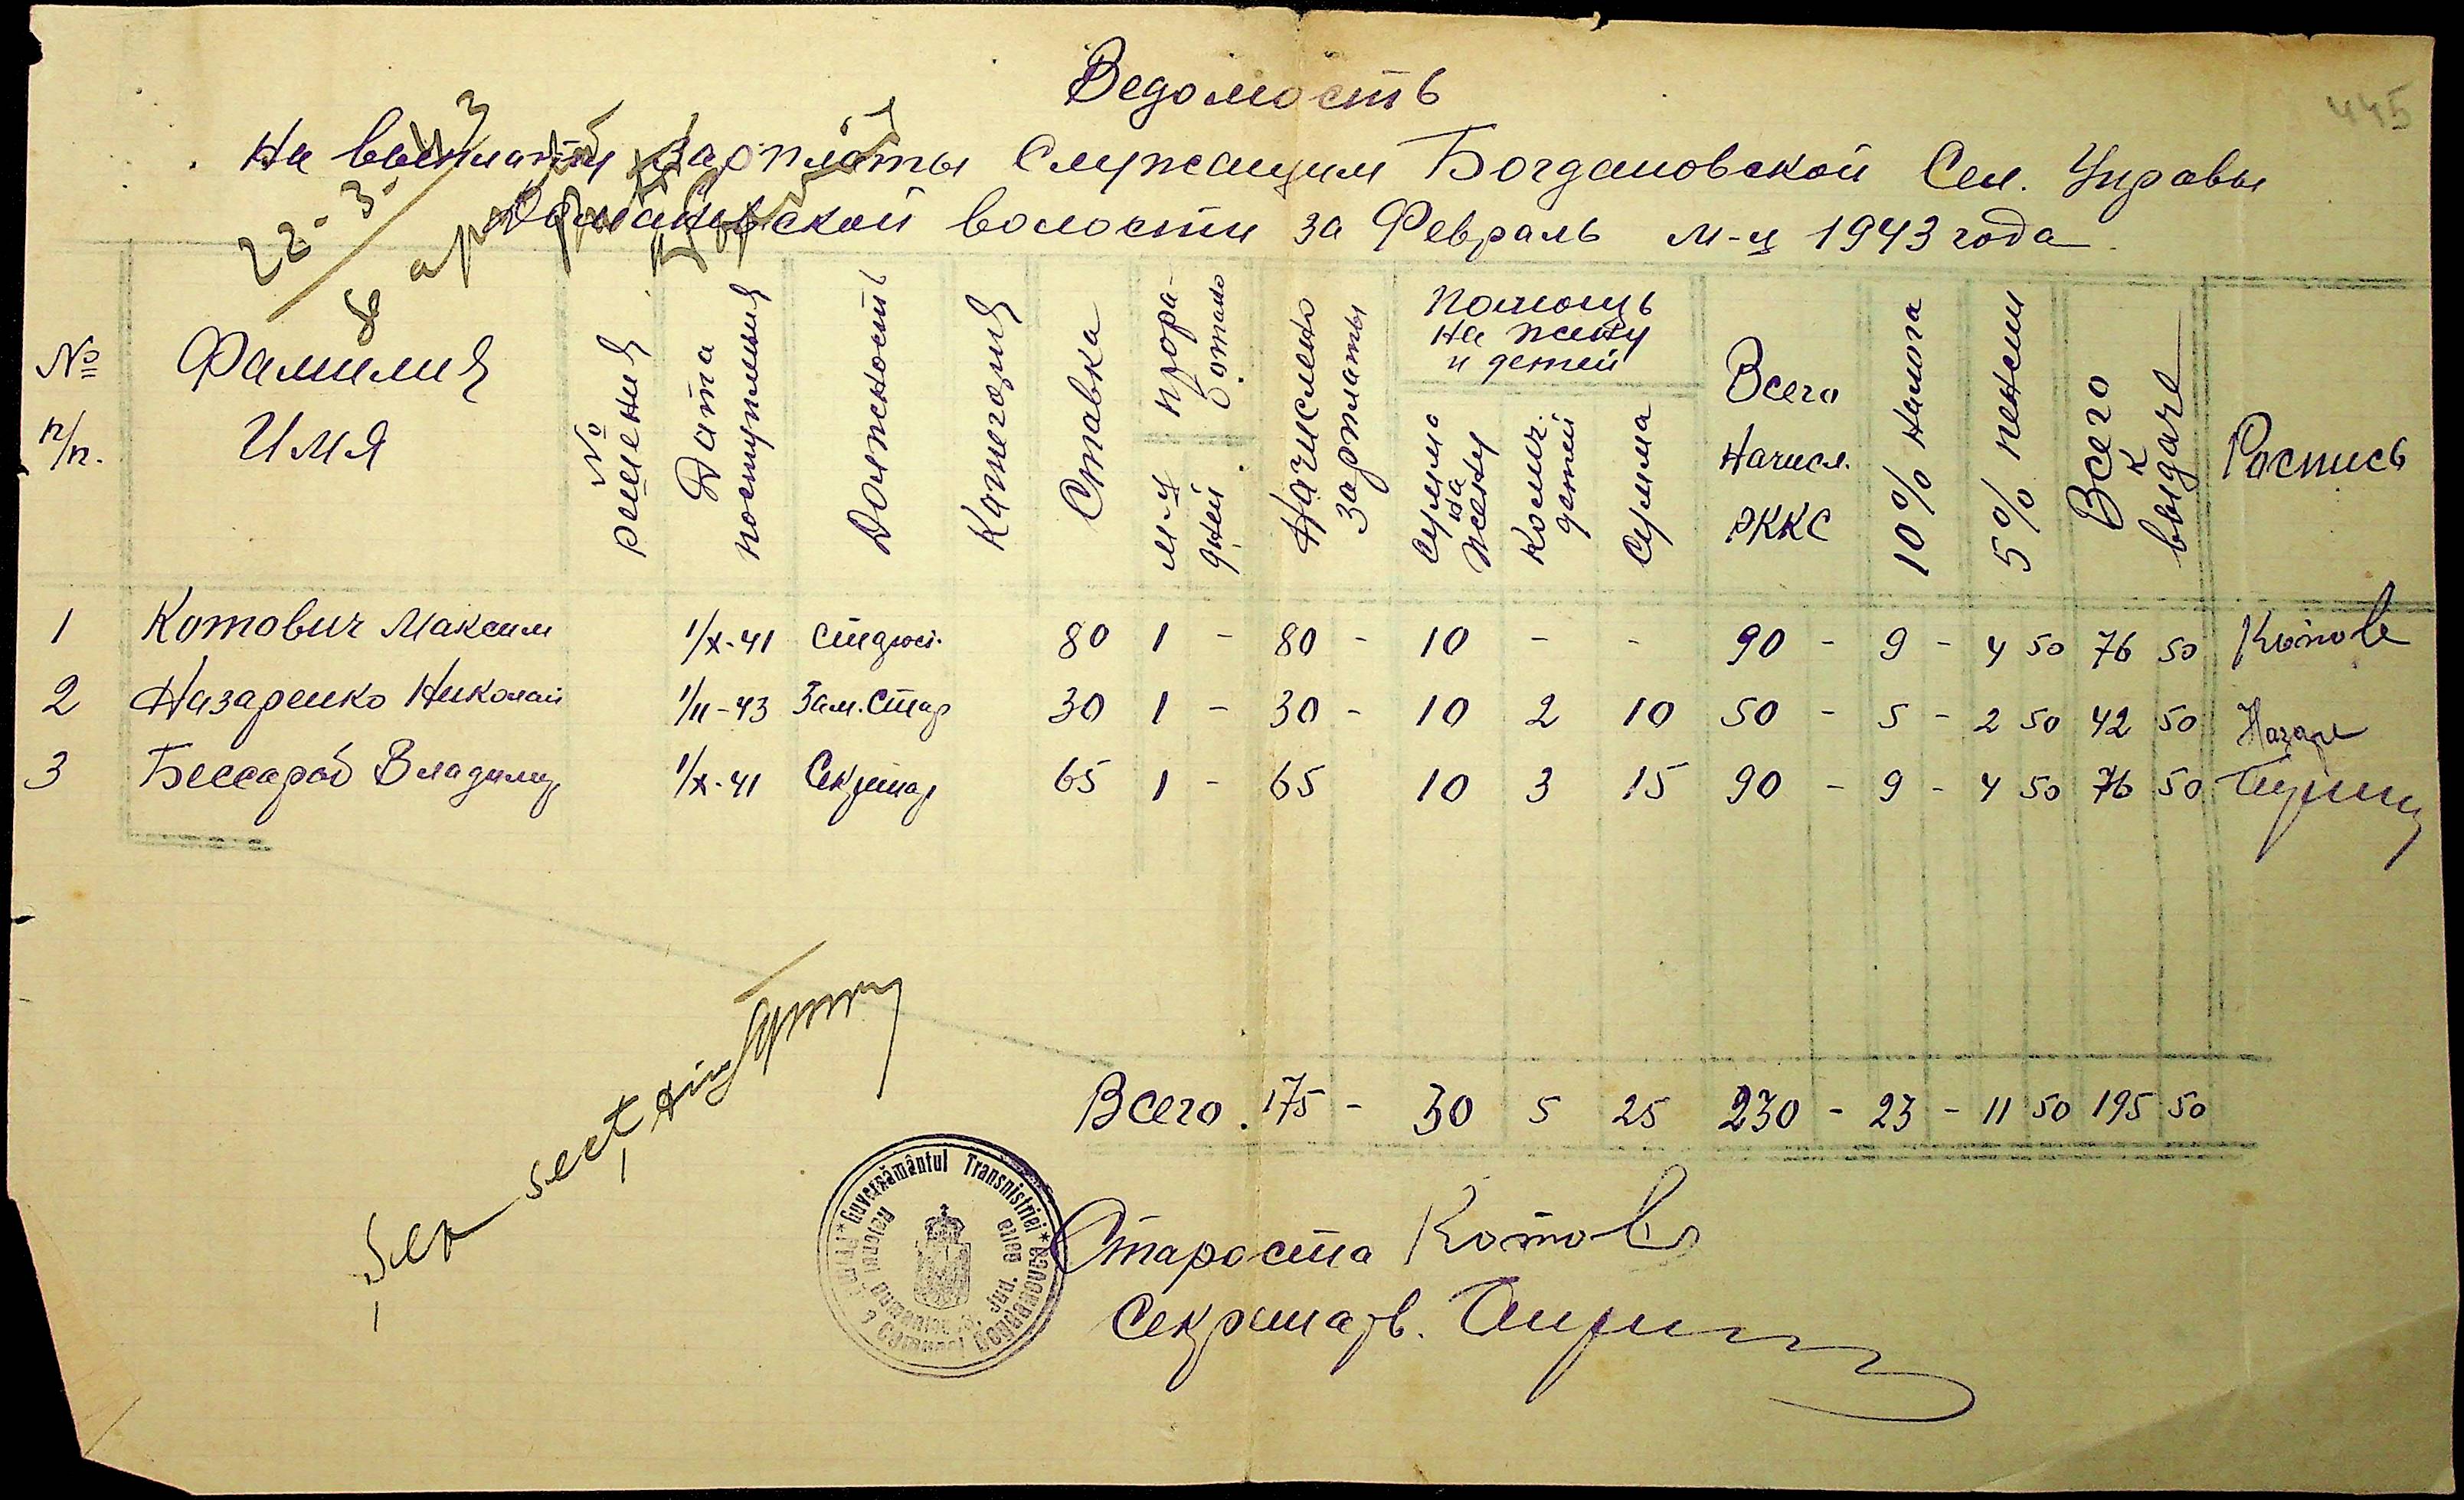 445
Ведомость
На выплату Зарплаты Служащим Богдановской Сел. Управы
Доманевской волости за Февраль м-ц 1943 года
22-3-43
№ п/п.
Фамилия Имя
№ решения
Дата поступления
Должность
Категория
Ставка
прора-ботано
м-ц
дней
Начислено зарплаты
Помощь на жену и детей
Сумма на жену
Колич. детей
Сумма
Всего Начисл. РККС
10% налога
5% пенсии
Всего к выдаче
Роспись
1 Котович Максим 1/X-41 80 1 - 80 - 10 - - 90 - 9 - 4 50 76 50 Котов
2 Назаренко Николай 1/II-43 Зам. Стар 30 1 - 30 - 10 2 10 50 - 5 - 2 50 42 50 Назаре
3 Бессараб Владимир 1/X-41 Секретар 65 1 - 65 10 3 15 90 - 9 - 4 50 76 50
Всего. 175 - 30 5 25 230 - 23 - 11 50 195 50
Şeff sect
* Guvernământul Transnistriei *
Староста Котов
Секретарь.